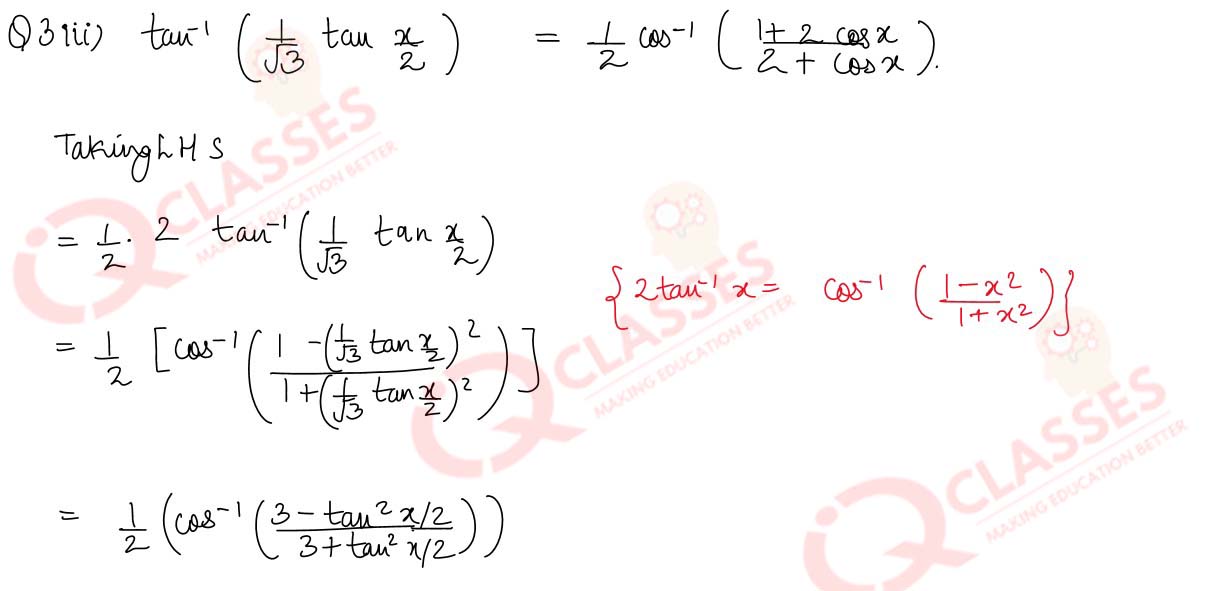 Q 3 iii) tan⁻¹ (1/√3 tan x/2) = 1/2 cos⁻¹ (1 + 2 cosx / 2 + cosx).
Taking L H S
= 1/2 . 2 tan⁻¹ (1/√3 tan x/2)
{2 tan⁻¹ x = cos⁻¹ (1 - x² / 1 + x²)}
= 1/2 [cos⁻¹ (1 - (1/√3 tan x/2)² / 1 + (1/√3 tan x/2)²)]
= 1/2 (cos⁻¹ (3 - tan² x/2 / 3 + tan² x/2))
IQ CLASSES
MAKING EDUCATION BETTER
IQ CLASSES
MAKING EDUCATION BETTER
IQ CLASSES
MAKING EDUCATION BETTER